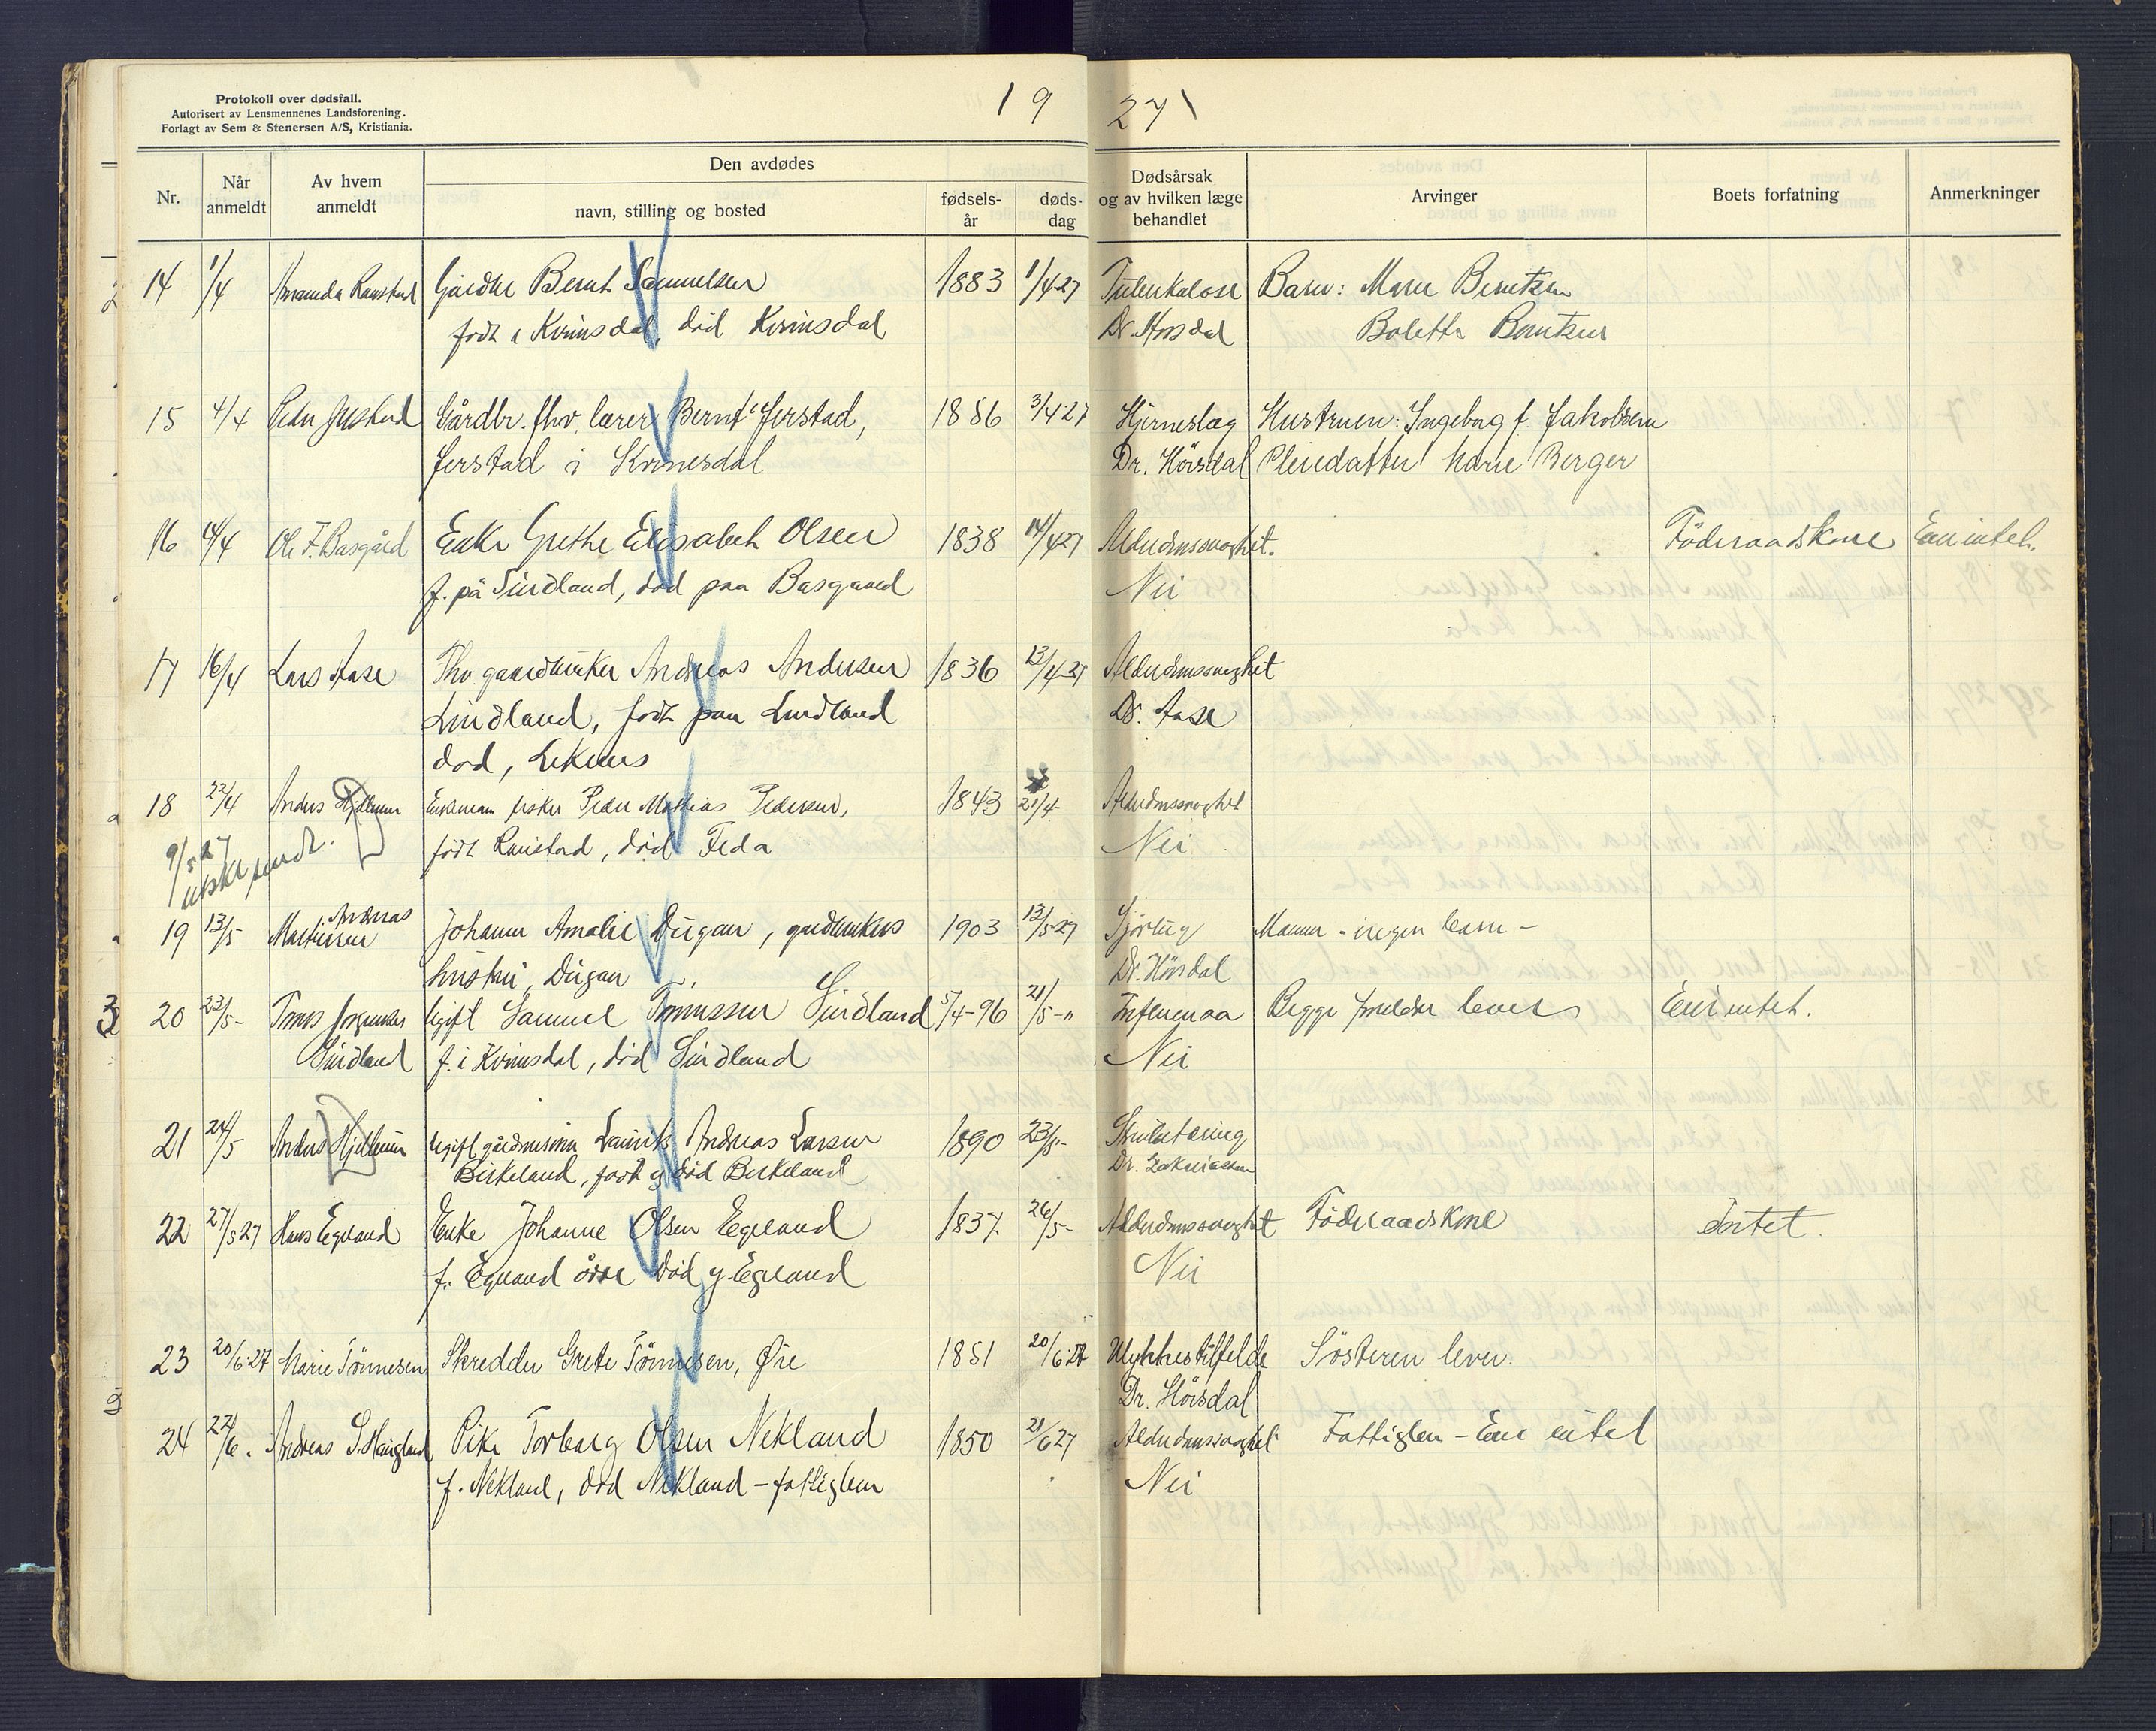 Protokoll over dødsfall.
Autorisert av Lensmennenes Landsforening.
Forlagt av Sem & Stenersen A/S, Kristiania.
1927
Nr. Når anmeldt Av hvem anmeldt Den avdødes navn, stilling og bosted fødsels-år døds-dag Dødsårsak og av hvilken læge behandlet Arvinger Boets forfatning Anmerkninger
14 1/4 Amanda Gårdbr Bernt Samuelsen 1883 1/4-27 Tuberkulose Barn: Marie Berntsen
født i Kvinesdal, död Kvinesdal Dr. Bolette Berntsen
15 4/4 Peder Jerstad Gårdbr. fhv. lærer Bernt Jerstad, 1856 3/4-27 Hjerneslag Hustruen: Ingeborg f. Jakobsen
Jerstad i Kvinesdal Dr. Hörsdal Pleiedatter Marie Berger
16 14/4 Ole F. Basgård Enke Grethe Elisabeth Olsen 1838 14/4 27 Alderdomssvaghet. Föderaadskone Eier intet.
f. på Sindland, död paa Basgaard Nei
17 16/4 Lars Aase Fhv. gaardbruker Andreas Andersen 1836 13/4-27 Alderdomssvaghet
Lindland, født paa Lindland Dr. Aase
død,
18 22/4 Anders Enkemann fisker Peder Mathias Pedersen, 1843 21/4 Alderdomssvaghet
født død Feda Nei
9/5 27
19 13/5 Andreas Johanne Amalie Dugan, gårdbrukers 1903 13/5-27 Manen - ingen barn -
hustru, Dugan Dr. Hörsdal
3 20 23/5- Tønnes Jørgensen Ugift Samuel Tønnessen Sindland 5/4-96 21/5-" Influensa Begge forelder lever Eier intet.
Sindland f. i Kvinesdal, död Sindland Nei
21 24/5 Anders Ugift Andreas Larsen 1890 23/5-
Birkeland, født og död Birkeland Dr. Zakariassen
22 27/5 27 Hans Egeland Enke Johanne Olsen Egeland 1837 26/5- Alderdomssvaghet Föderaadskone Intet.
f. Egeland död Egeland Nei
23 20/6-27 Marie Tönnesen Skredder Grete Tönnesen, Øie 1851 20/6-27 Ulykkestilfelde Sösteren lever.
Dr. Hörsdal
24 22/6. Andreas S. Haugland Pike Torborg Olsen Nekland 1850 21/6 27 Alderdomssvaghet Fattiglem - Eier intet
f. Nekland, død Nekland - fattiglem Nei